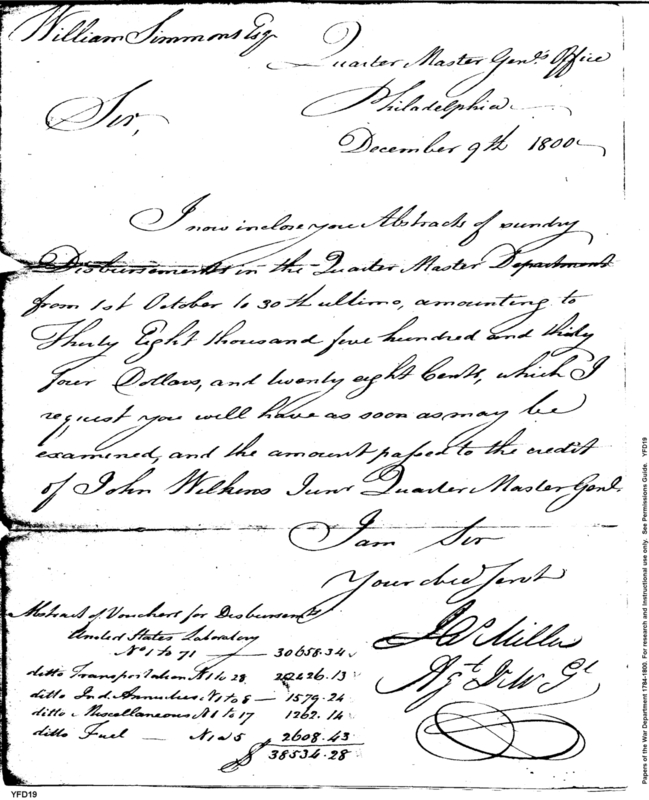 William Simmons Esq.
Quarter Master Genl's Office
Philadelphia
Sir,
December 9th 1800
I now inclose you Abstracts of sundry
Disbursements in the Quarter Master Department
from 1st October to 30th ultimo, amounting to
Thirty Eight thousand five hundred and thirty
four Dollars, and twenty eight Cents, which I
request you will have as soon as may be
examined, and the amount passed to the credit
of John Wilkins Junr Quarter Master Genl.
I am Sir
Your obed Servt
Jno Miller
Agt Q M Gl
Abstract of Vouchers for Disbursemts
United States Laboratory
No 1 to 71 — 30658.34
ditto Transportation N 1 to 28 2426.13
ditto Ind. Annuities N 1 to 8 — 1579.24
ditto Miscellaneous N 1 to 17 1262.14
ditto Fuel — N 1 a 5 2608.43
$ 38534.28
YFD19
Papers of the War Department 1784-1800. For research and instructional use only. See Permissions Guide. YFD19